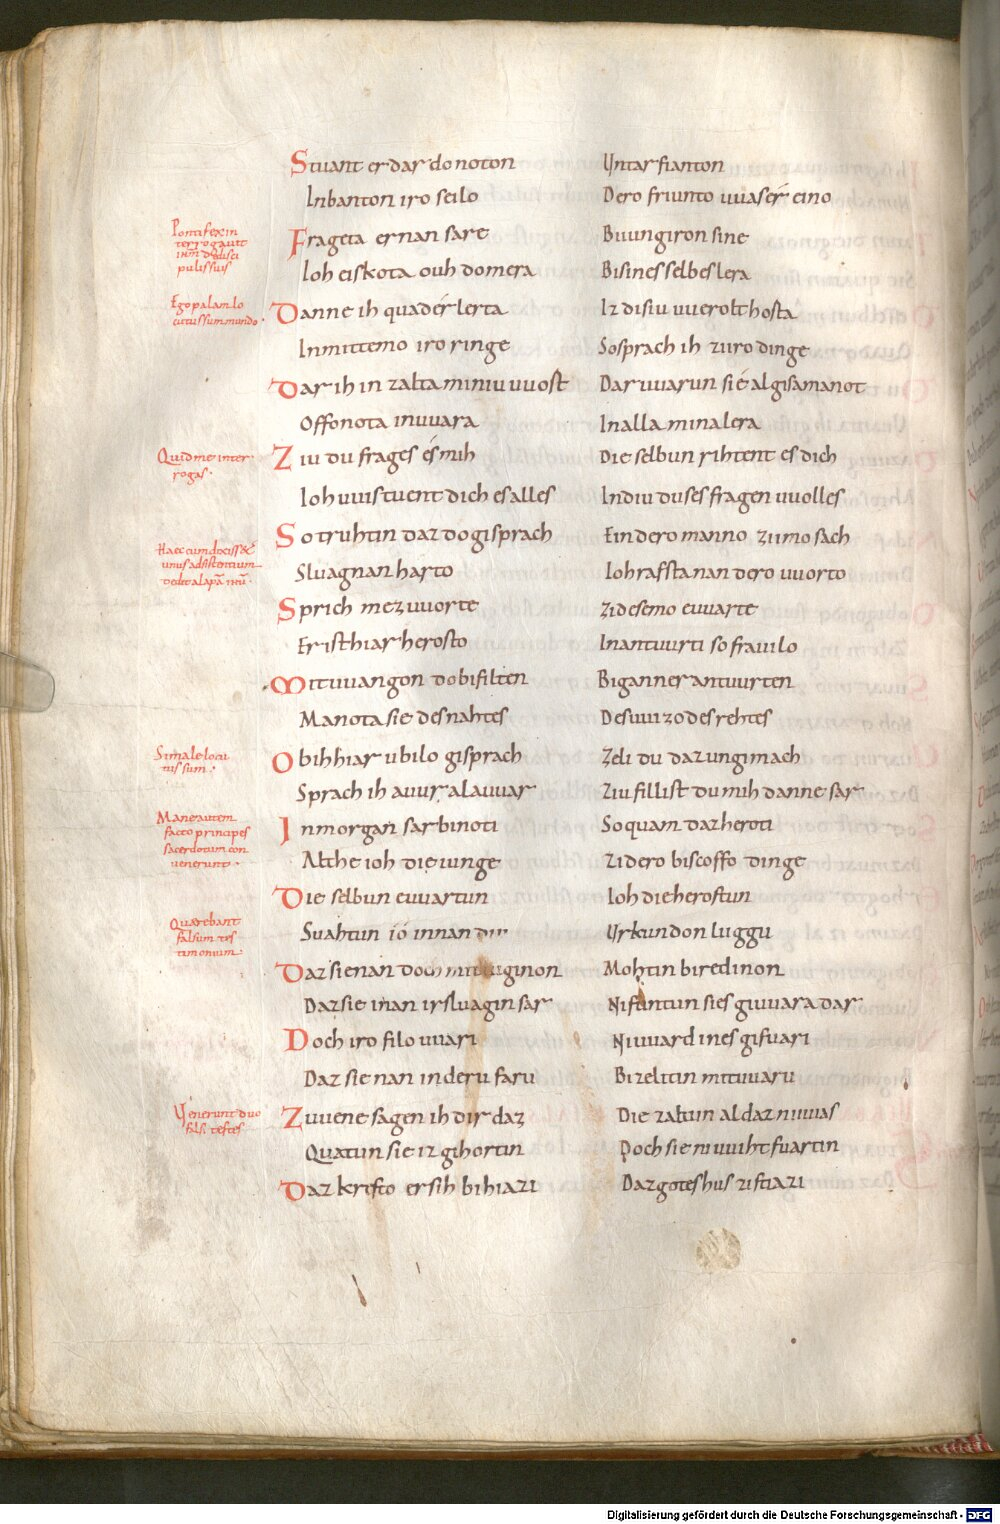 Stuant er dar do noton Untar fianton
Inbanton iro seilo Dero friunto uuaser eino
Pontifex in
terrogavit
ihm de disci
pulis suis
Frageta er nan sare Biuungiron sine
Ioh eiskota ouh do mera Bi sines selbes lera
Ego palam lo
cutus sum mundo
Danne ih quad er lerta Iz disiu uuerolt hosta
In mittemo iro ringe So sprach ih zi iro dinge
Dar ih in zalta miniu uuost Dar uuarun sie al gisamanot
Offonota in uuara In alla mina lera
Quid me inter
rogas
Ziu du frages es mih Die selbun rihtent es dich
Ioh uuistuent dich es alles In diu du ses fragen uuolles
So truhtin daz do gisprach Ein dero manno zi imo sach
Haec cum dixiss&
unus adsistentium
dedit alapā ihū
Sluagnan harto Ioh rafstanan dero uuorto
Sprich mez uuorte Zi desemo euuarte
Er ist hiar herosto In antuurti so frauilo
Mit uuangon do bifilten Bigan ner antuurten
Manota sie des nahtes Des uuizodes rehtes
Si male locu
tus sum
Ob ih hiar ubilo gisprach Zeli du daz ungimach
Sprach ih auur alauuar Ziu fillist du mih danne sar
Mane autem
facto principes
sacerdotum con
venerunt
In morgan sar bi noti So quam daz heroti
Althe ioh die iunge Zi dero biscoffo dinge
Die selbun euuartun Ioh die herostun
Quaerebant
falsum tes
timonium
Suahtun io innan Urkundon luggu
Daz sie nan doch mit luginon Mohtin biredinon
Daz sie inan irsluagin sar Ni funtun sies giuuara dar
Doch iro filo uuari Ni uuard in es gifuari
Daz sie nan in deru faru Bizelitin mit uuaru
Venerunt duo
falsi testes
Zuuene sagen ih dir daz Die zaltun al daz niuuas
Quatun sie iz gihortin Doch sie ni uuiht fuartin
Daz krisfo er sih bihiazi Daz gotes hus zistiazi
Digitalisierung gefördert durch die Deutsche Forschungsgemeinschaft - DFG